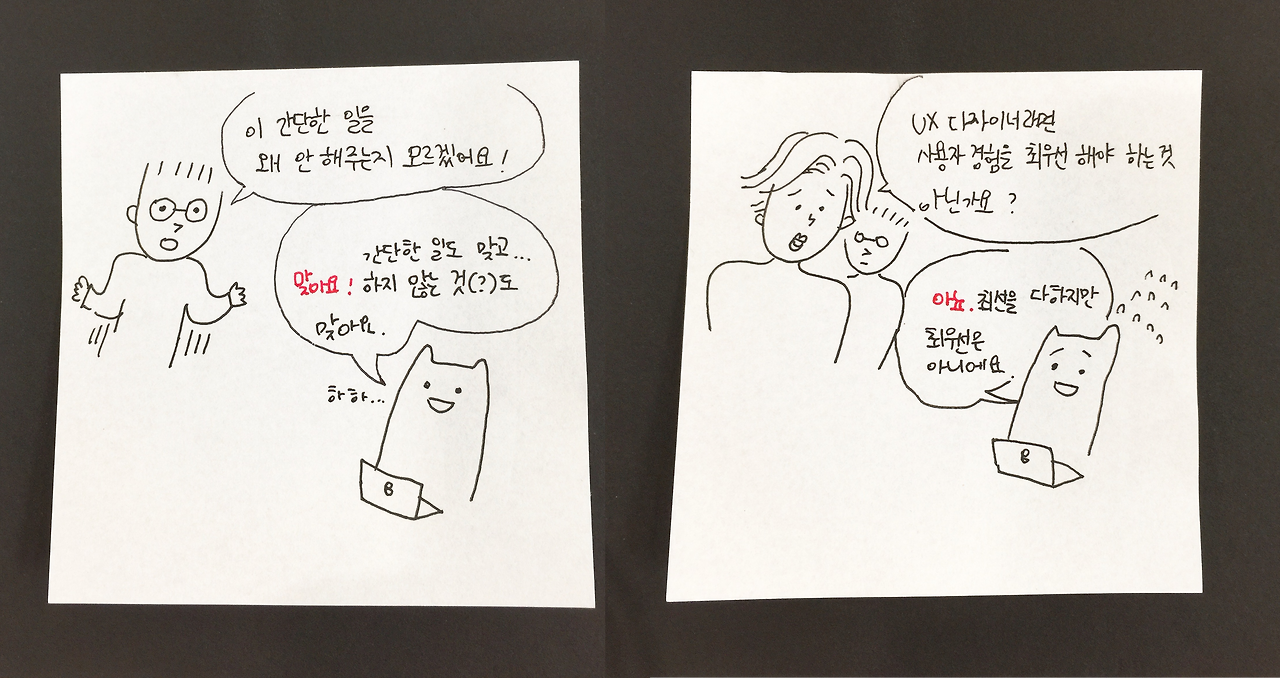 이 간단한 일을
왜 안 해주는지 모르겠어요!
간단한 일도 맞고...
맞아요! 하지 않는 것(?)도
맞아요.
하하...
B
UX 디자이너라면
사용자 경험을 최우선 해야 하는 것
아닌가요?
아뇨. 최선을 다하지만
최우선은
아니에요.
B